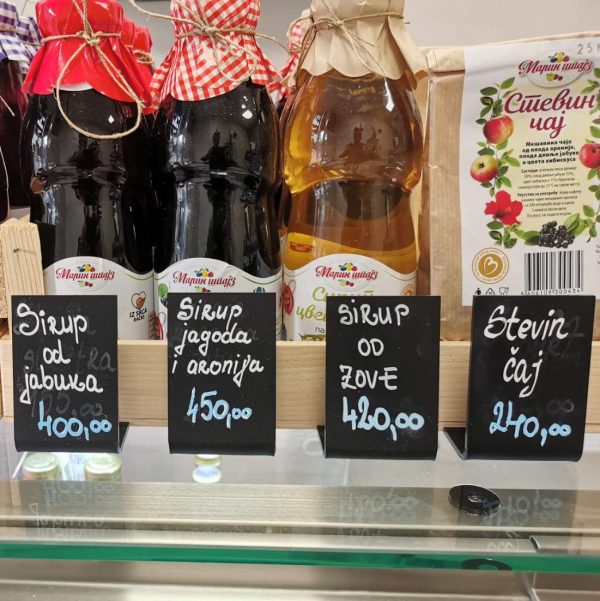 Марин штајз
Стевин
чај
Мешавина чаја
од плода ароније,
плода дивље јабуке
и цвета хибискуса
25
Марин штајз
IZ SRCA
BAČKE
Марин штајз
Марин штајз
Сируп
цвет
Sirup
od
jabuka
400,00
Sirup
jagoda
i aronija
450,00
SIRUP
OD
ZOVE
420,00
Stevin
čaj
240,00